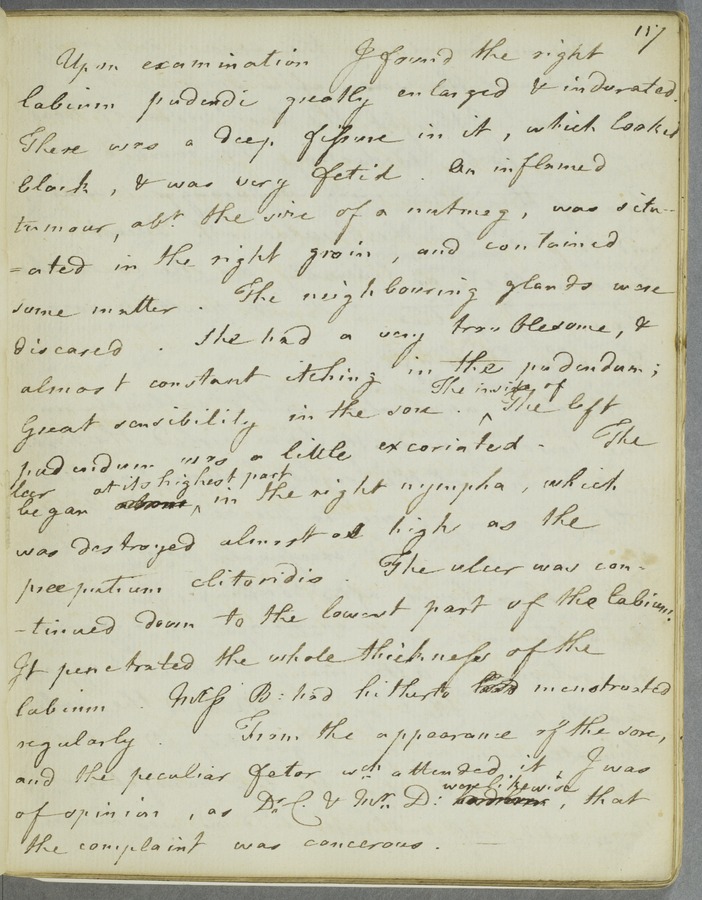 117
Upon examination I found the right
labium pudendi greatly enlarged & indurated.
There was a deep fissure in it, which looked
black, & was very fetid. An inflamed
tumour, abt. the size of a nutmeg, was situ-
=ated in the right groin, and contained
some matter. The neighbouring glands were
diseased. She had a very troublesome, &
almost constant itching in the pudendum;
The inside of
Great sensibility in the sore. ^ The left
pudendum was a little excoriated. The
ulcer at its highest part
began ^ in the right nympha, which
was destroyed almost as high as the
præputium clitoridis. The ulcer was con-
-tinued down to the lowest part of the labium.
It penetrated the whole thickness of the
labium. Miss B: had hitherto menstruated
regularly. From the appearance of the sore,
and the peculiar fetor wch attended it, I was
were likewise
of opinion, as Dr. C. & Mr. D: , that
the complaint was cancerous.